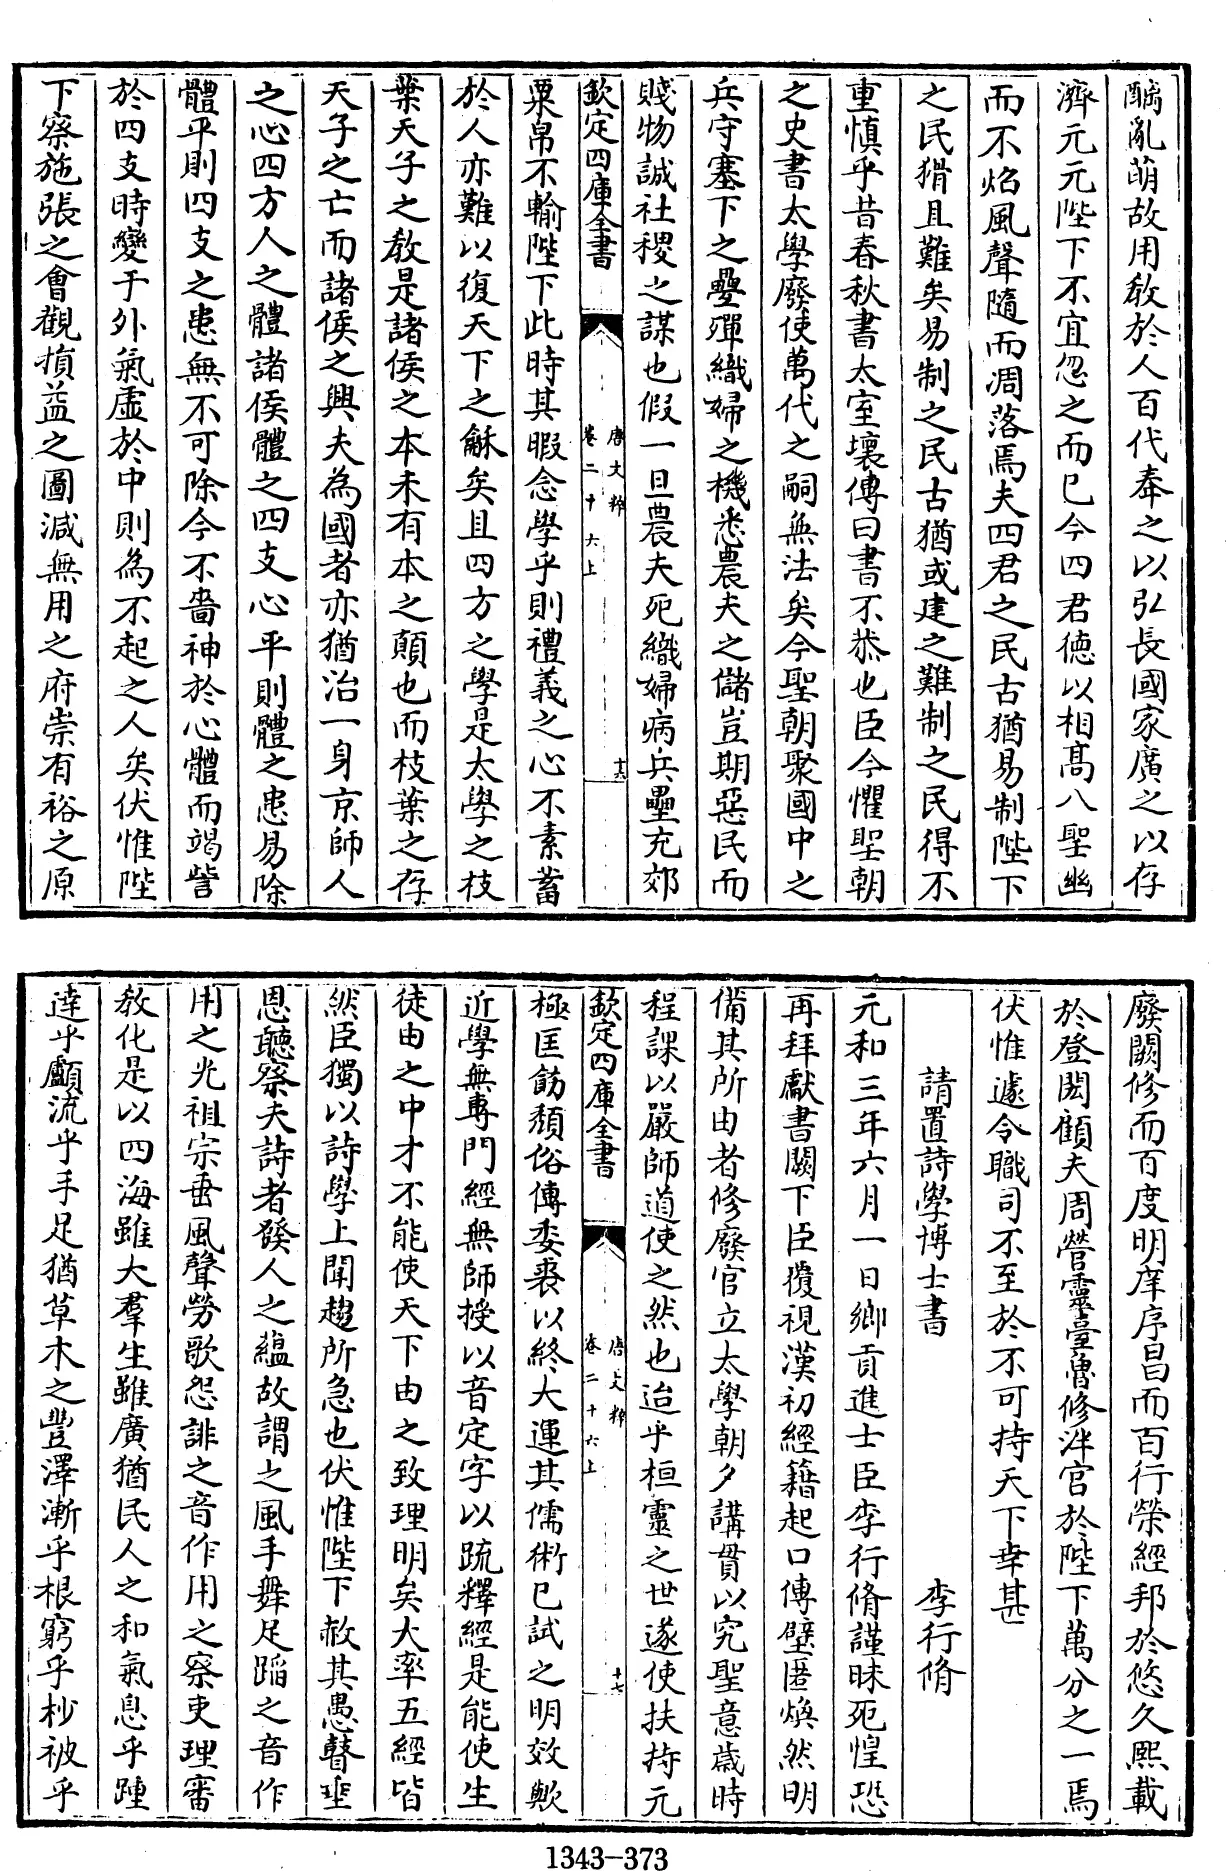 酗亂萌故用敎於人百代奉之以弘長國家廣之以存
濟元元陛下不宜忽之而已今四君德以相髙八聖幽
而不焰風聲隨而凋落焉夫四君之民古猶易制陛下
之民猾且難矣易制之民古猶或建之難制之民得不
重慎乎昔春秋書太室壞傳曰書不恭也臣今懼聖朝
之史書太學廢使萬代之嗣無法矣今聖朝聚國中之
兵守塞下之壘殫織婦之機悉農夫之儲豈期惡民而
賤物誠社稷之謀也假一旦農夫死織婦病兵壘充郊
欽定四庫全書
唐文粹
卷二十六上
十六
粟帛不輸陛下此時其暇念學乎則禮義之心不素蓄
於人亦難以復天下之龢矣且四方之學是太學之枝
葉天子之敎是諸侯之本未有本之顛也而枝葉之存
天子之亡而諸侯之興夫為國者亦猶治一身京師人
之心四方人之體諸侯體之四支心平則體之患易除
體平則四支之患無不可除今不嗇神於心體而竭訾
於四支時變于外氣虛於中則為不起之人矣伏惟陛
下察施張之會觀損益之圖減無用之府崇有裕之原
廢闕修而百度明庠序昌而百行榮經邦於悠久熈載
於登閎顧夫周營靈臺魯修泮宫於陛下萬分之一焉
伏惟遽令職司不至於不可持天下幸甚
請置詩學博士書
李行脩
元和三年六月一日鄉貢進士臣李行脩謹昧死惶恐
再拜獻書闕下臣覆視漢初經籍起口傳壁匿煥然明
備其所由者修廢官立太學朝夕講貫以究聖意歲時
程課以嚴師道使之然也迨乎桓靈之世遂使扶持元
欽定四庫全書
唐文粹
卷二十六上
十七
極匡飭頽俗傳委裘以終大運其儒術已試之明效歟
近學無專門經無師授以音定字以疏釋經是能使生
徒由之中才不能使天下由之致理明矣大率五經皆
然臣獨以詩學上聞趨所急也伏惟陛下赦其愚瞽垂
恩聽察夫詩者發人之蘊故謂之風手舞足蹈之音作
用之光祖宗垂風聲勞歌怨誹之音作用之察吏理審
敎化是以四海雖大羣生雖廣猶民人之和氣息乎踵
達乎顱流乎手足猶草木之豐澤漸乎根窮乎杪被乎
1343-373